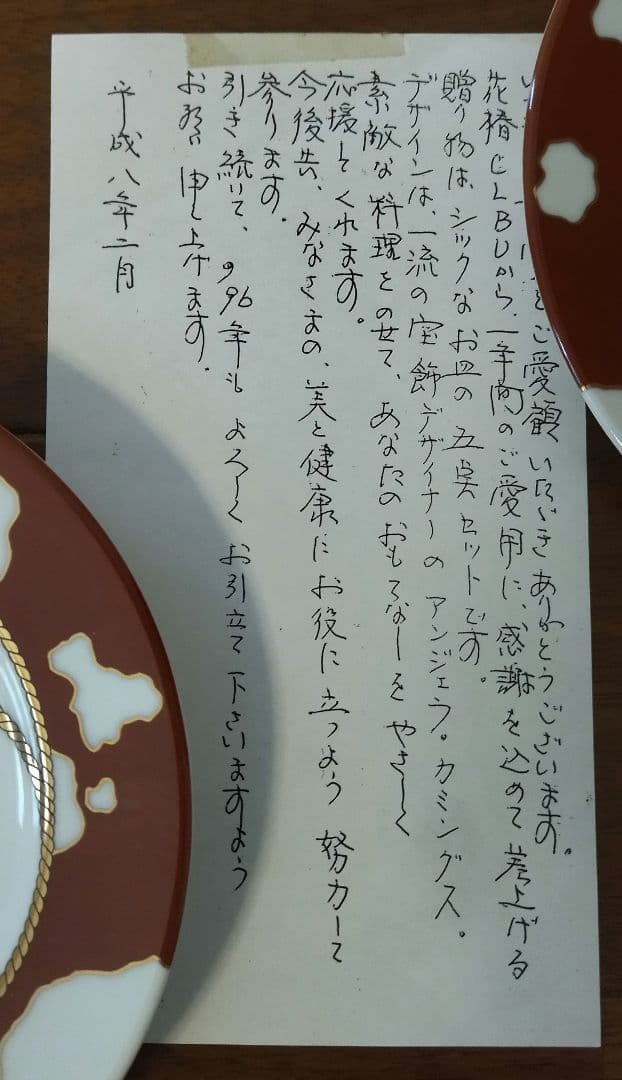 をご愛顧いただきありがとうございます。
花椿CLBUから、一年間のご愛用に、感謝を込めて差上げる
贈り物は、シックなお皿の五実セットです。
デザインは、一流の宝飾デザイナーのアンジェラ。カミングス。
素敵な料理をのせて、あなたのおもてなしをやさしく
応援してくれます。
今後共、みなさまの、美と健康にお役に立つよう努力して
参ります。
引き続いて、'96年もよろしくお引立て下さいますよう
お願い申し上げます。
平成八年二月